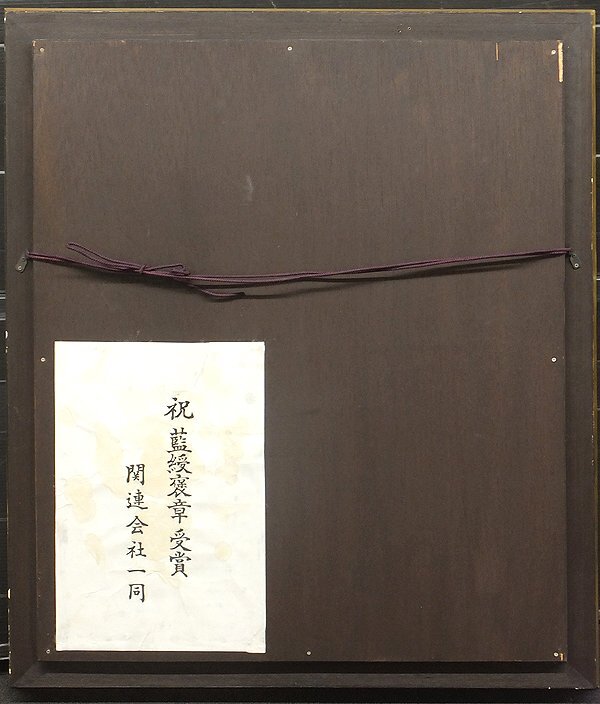 祝 藍綬褒章受賞
関連会社一同